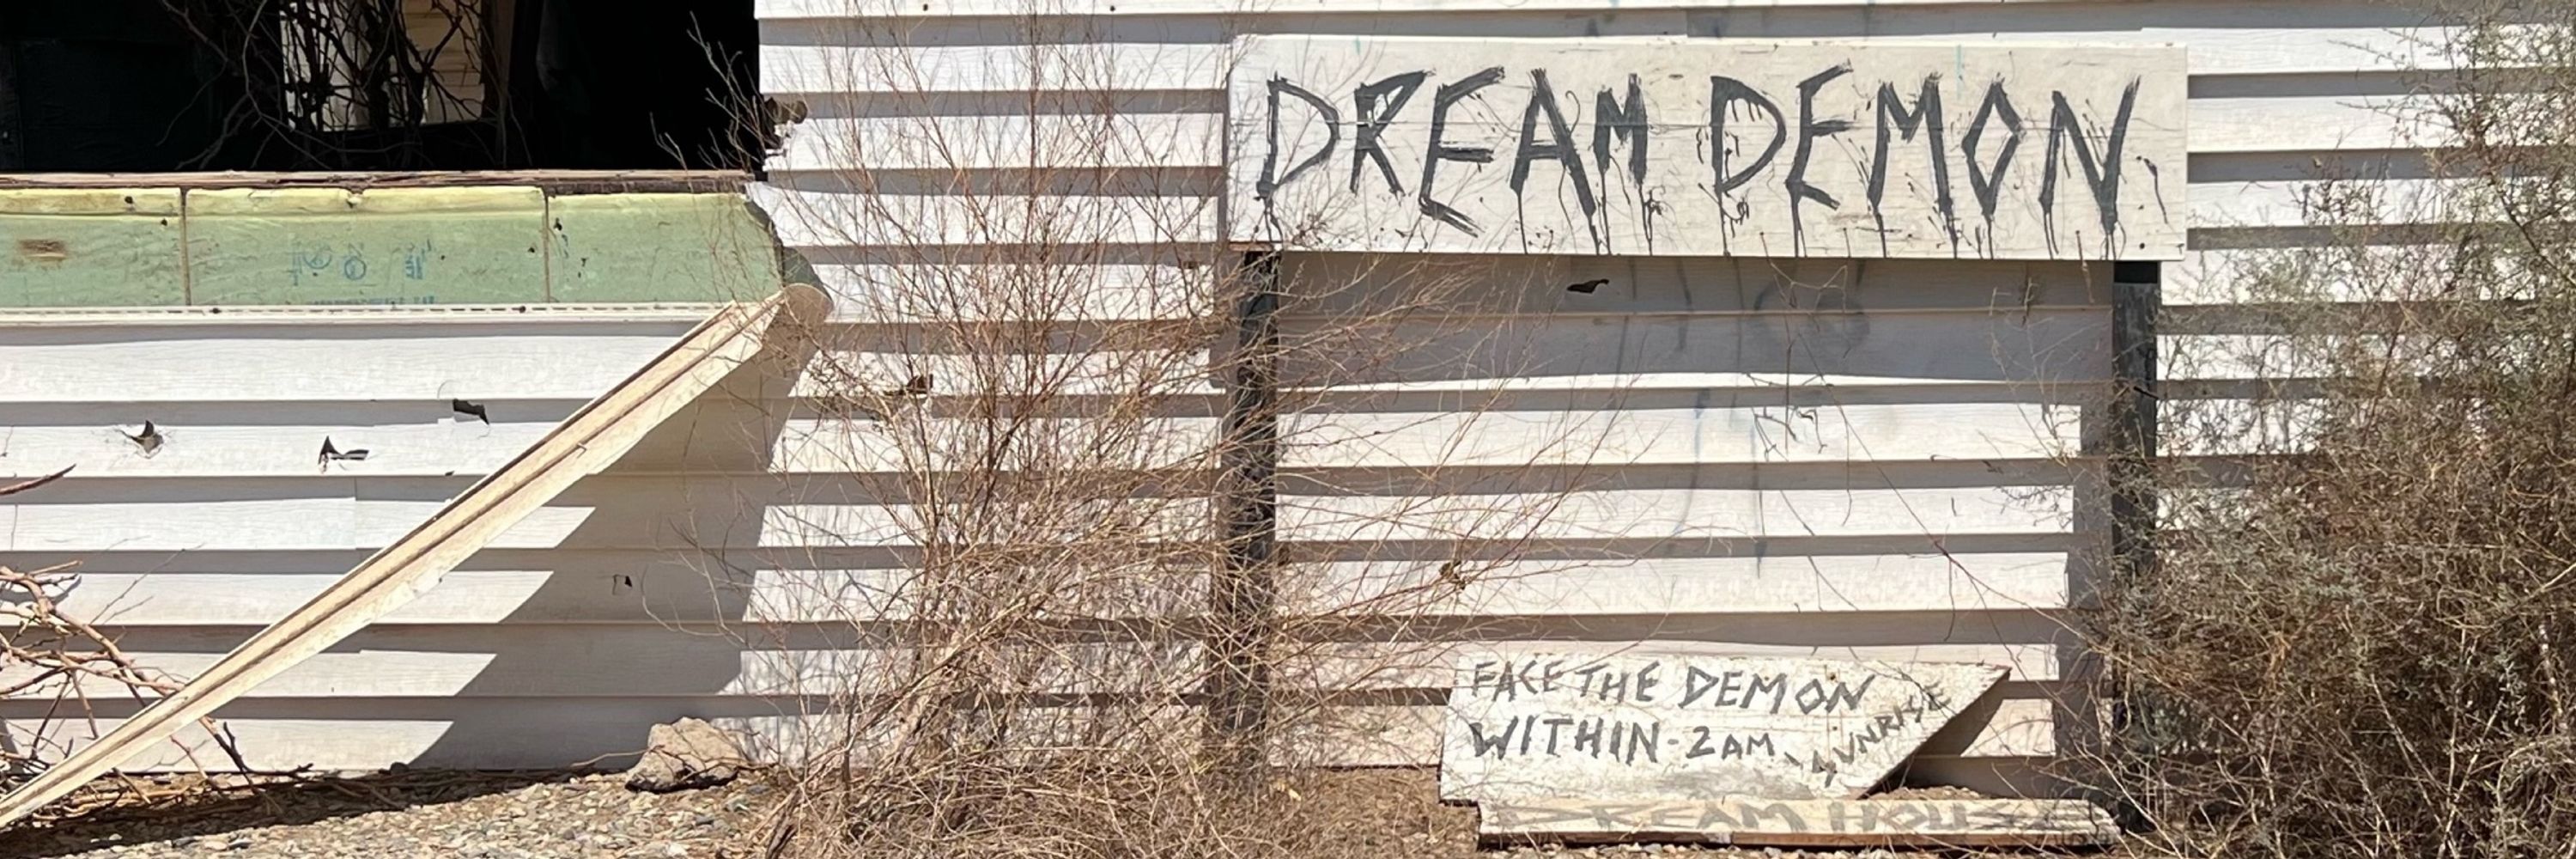 DREAM DEMON.
FACE THE DEMON
WITHIN - 2AM - SUNRISE
DREAM HOUSE